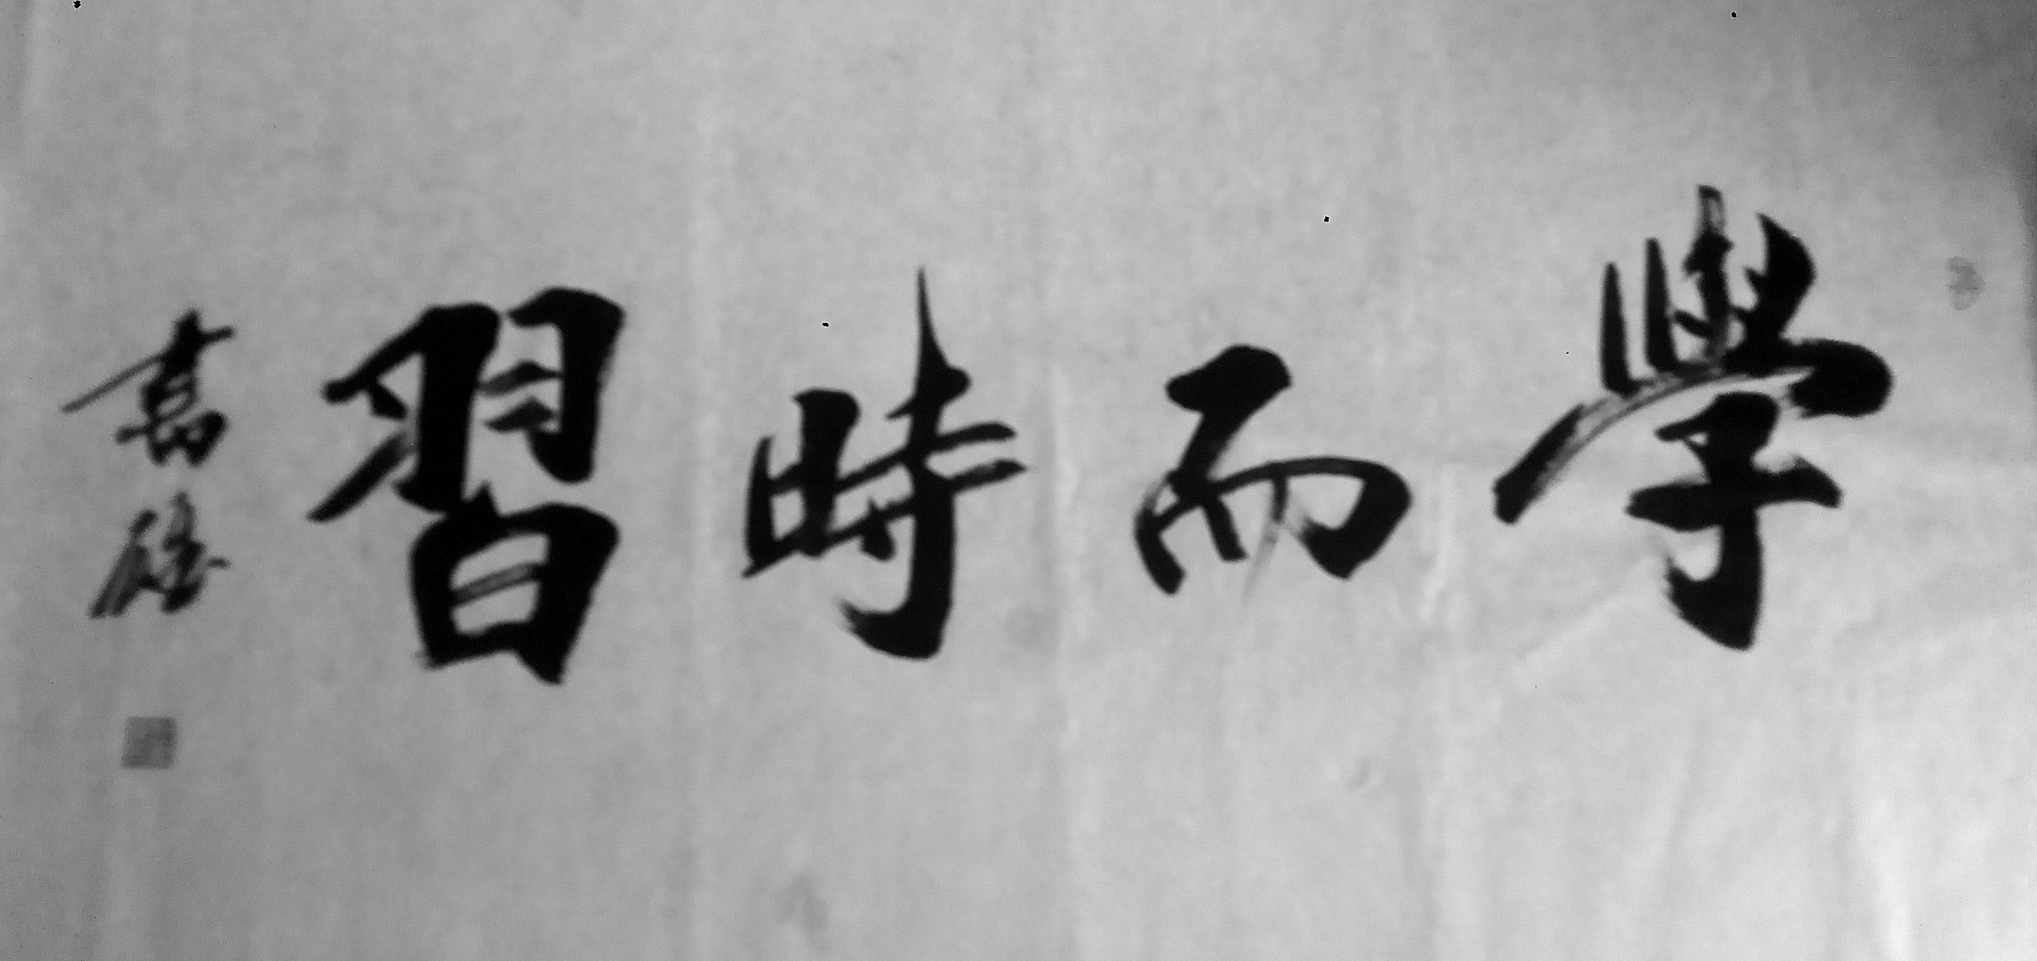 學而時習
嘉